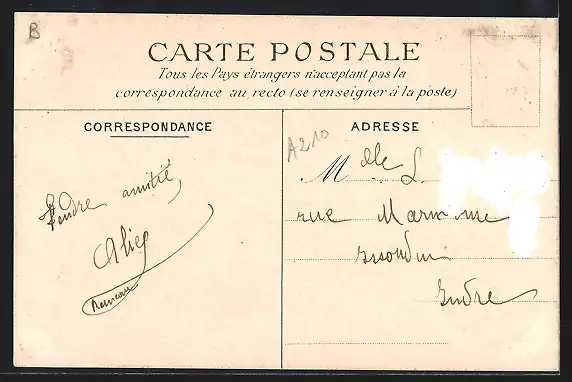 B
CARTE POSTALE
Tous les Pays étrangers n'acceptant pas la
correspondance au recto (se renseigner à la poste)
CORRESPONDANCE
ADRESSE
A210
Mdlle L.
Tendre amitié,
rue
Issoudun
Indre